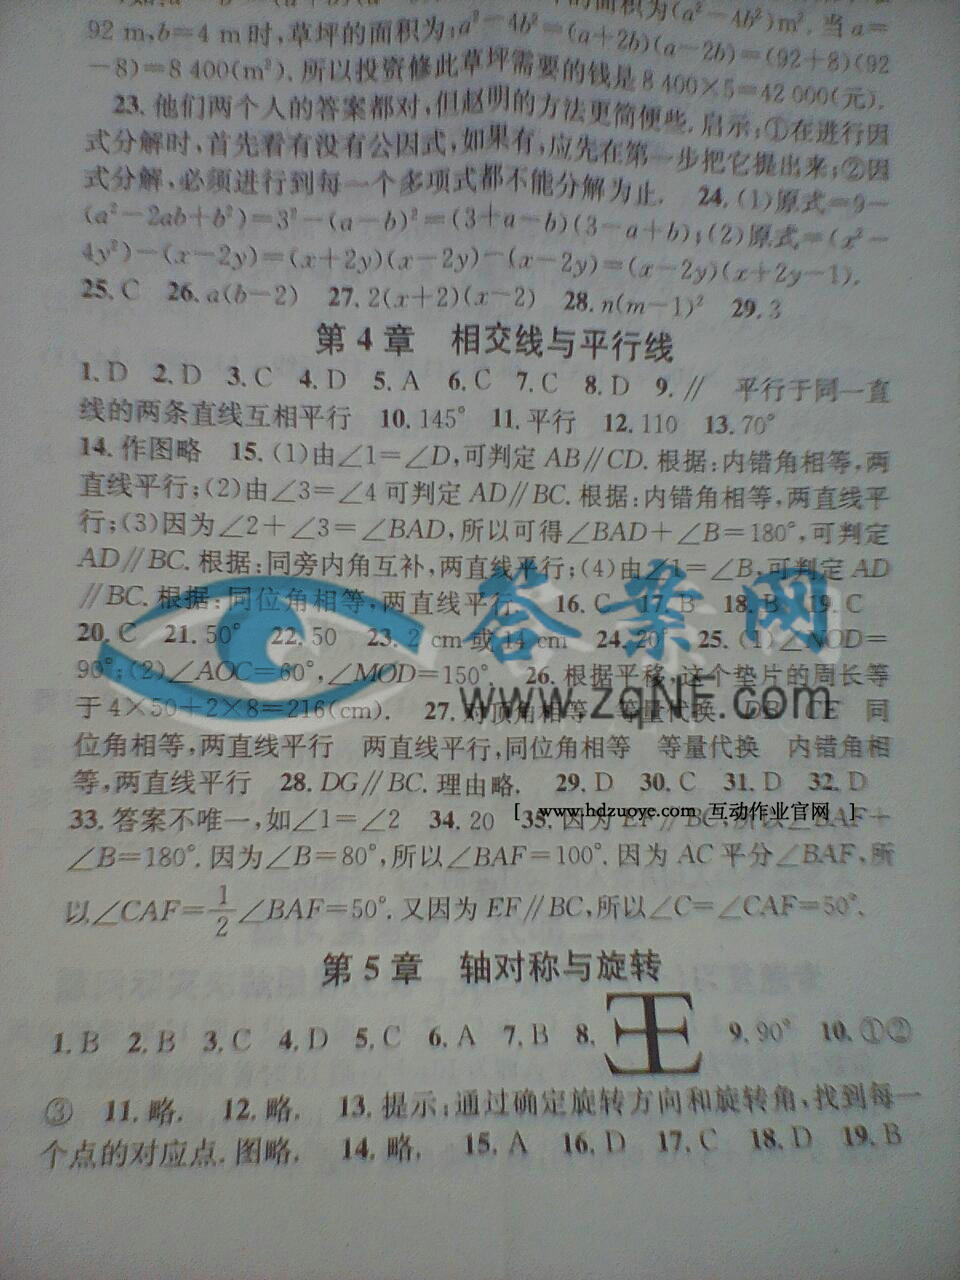 的面积为(a²－4b²)m². 当 a＝
92 m,b＝4 m 时,草坪的面积为:a²－4b²＝(a＋2b)(a－2b)＝(92＋8)(92
－8)＝8 400(m²). 所以投资修此草坪需要的钱是 8 400×5＝42 000(元).
23. 他们两个人的答案都对,但赵明的方法更简便些. 启示:①在进行因
式分解时,首先看有没有公因式,如果有,应先在第一步把它提出来;②因
式分解,必须进行到每一个多项式都不能分解为止. 24. (1)原式＝9－
(a²－2ab＋b²)＝3²－(a－b)²＝(3＋a－b)(3－a＋b);(2)原式＝(x²－
4y²)－(x－2y)＝(x＋2y)(x－2y)－(x－2y)＝(x－2y)(x＋2y－1).
25. C 26. a(b－2) 27. 2(x＋2)(x－2) 28. n(m－1)² 29. 3
第 4 章 相交线与平行线
1. D 2. D 3. C 4. D 5. A 6. C 7. C 8. D 9. ∥ 平行于同一直
线的两条直线互相平行 10. 145° 11. 平行 12. 110 13. 70°
14. 作图略 15. (1)由∠1＝∠D,可判定 AB∥CD. 根据:内错角相等,两
直线平行;(2)由∠3＝∠4 可判定 AD∥BC. 根据:内错角相等,两直线平
行;(3)因为∠2＋∠3＝∠BAD,所以可得∠BAD＋∠B＝180°,可判定
AD∥BC. 根据:同旁内角互补,两直线平行;(4)由∠1＝∠B,可判定 AD
∥BC. 根据:同位角相等,两直线平行 16. C 17. B 18. B 19. C
20. C 21. 50° 22. 50 23. 2 cm 或 14 cm 24. 20° 25. (1)∠NOD＝
90°;(2)∠AOC＝60°,∠MOD＝150° 26. 根据平移,这个垫片的周长等
于 4×50＋2×8＝216(cm). 27. 对顶角相等 等量代换 DB CE 同
位角相等,两直线平行 两直线平行,同位角相等 等量代换 内错角相
等,两直线平行 28. DG∥BC. 理由略. 29. D 30. C 31. D 32. D
33. 答案不唯一,如∠1＝∠2 34. 20 35. 因为 EF∥BC,所以∠BAF＋
∠B＝180°. 因为∠B＝80°,所以∠BAF＝100°. 因为 AC 平分∠BAF,所
以∠CAF＝1/2∠BAF＝50°. 又因为 EF∥BC,所以∠C＝∠CAF＝50°.
第 5 章 轴对称与旋转
1. B 2. B 3. C 4. D 5. C 6. A 7. B 8. 9. 90° 10. ①②
③ 11. 略. 12. 略. 13. 提示:通过确定旋转方向和旋转角,找到每一
个点的对应点. 图略. 14. 略. 15. A 16. D 17. C 18. D 19. B
答案网
www.zqNF.com
[ www.hdzuoye.com 互动作业官网 ]